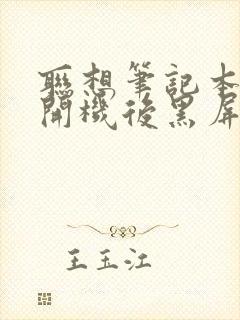 聯想筆記本
開機後黑屏
王玉江